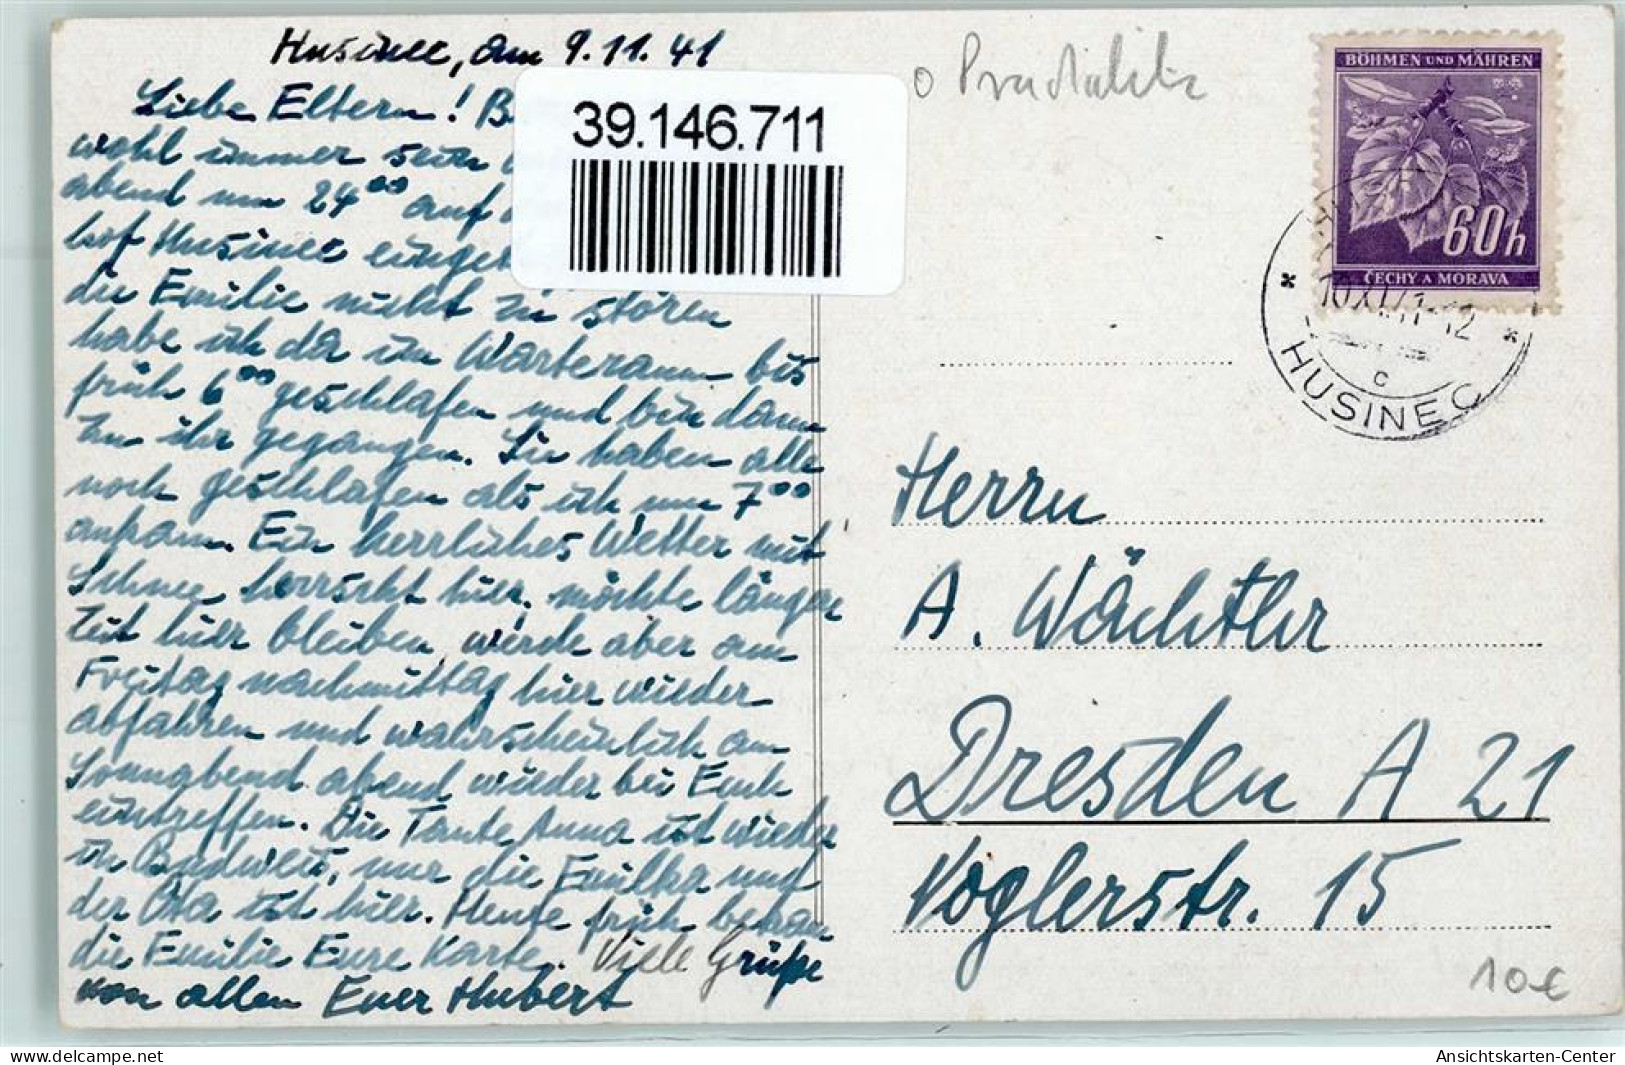 Husinec, am 9.11.41
Liebe Eltern! B
wohl immer sein
abend um 24⁰⁰ auf
hof Husinec einget
die Emilie nicht zu stören
habe ich da im Warteraum bis
früh 6⁰⁰ geschlafen und bin dann
zu ihr gegangen. Sie haben alle
noch geschlafen als ich um 7⁰⁰
ankam. Ein herrliches Wetter mit
Schnee herrscht hier, möchte längere
Zeit hier bleiben, werde aber am
Freitag nachmittag hier wieder
abfahren und wahrscheinlich am
Sonnabend abend wieder bei Euch
eintreffen. Die Tante Anna ist wieder
in Budweis, nur die Emilka und
der Ota ist hier. Heute früh bekam
die Emilie Eure Karte. Viele Grüße
von allen Euer Hubert
39.146.711
o
BÖHMEN UND MÄHREN
60h
ČECHY A MORAVA
10.XI.41-12
c
HUSINEC
Herrn
A. Wächtler
Dresden A 21
Voglerstr. 15
10€
www.delcampe.net
Ansichtskarten-Center